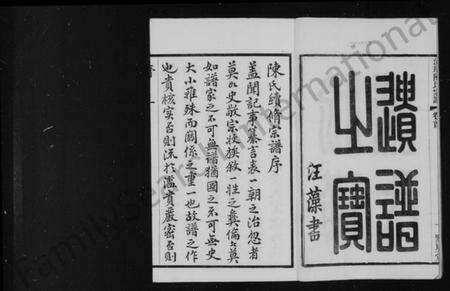 遺譜
之寶
汪藻書
陳氏續修宗譜序
蓋聞記事纂言表一朝之治忽者
莫如史敬宗掞族敘一姓之彝倫者莫
如譜家之不可無譜猶國之不可無史
大小雖殊而關係之重一也故譜之作
也貴核實否則流於濫貴嚴密否則
FamilySearch International